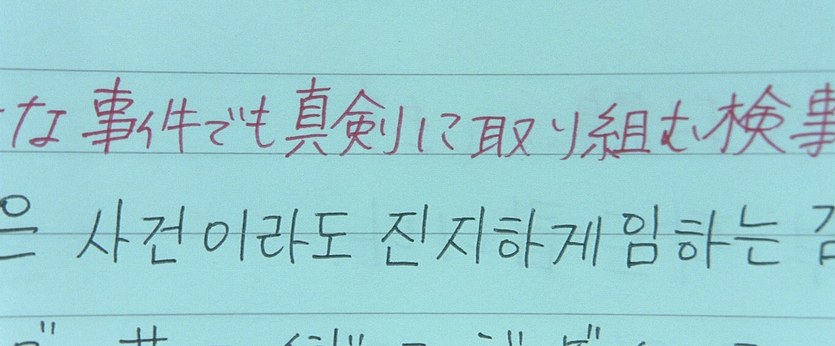 な事件でも真剣に取り組む検事
은 사건이라도 진지하게임하는